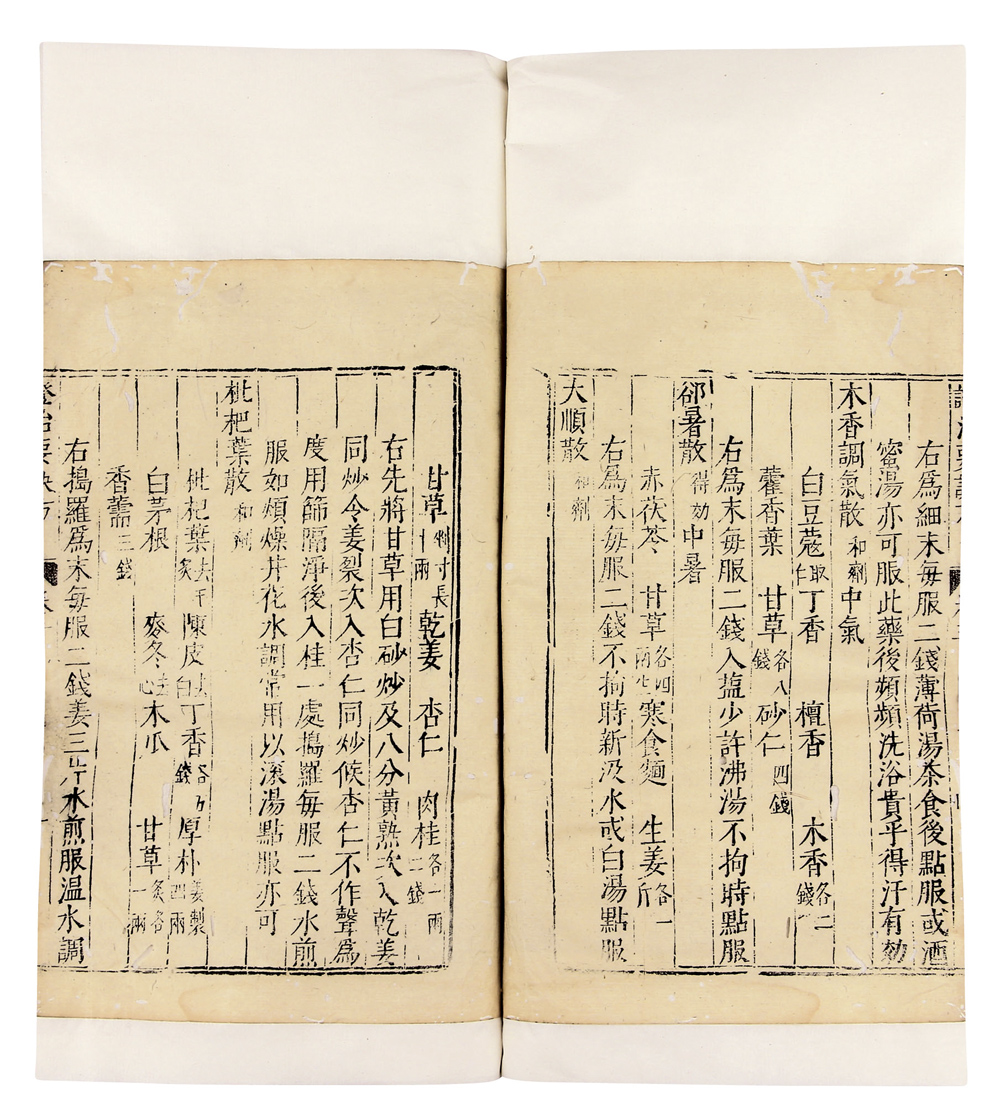 右爲細末每服二錢薄荷湯茶食後點服或酒
蜜湯亦可服此藥後頻頻洗浴貴乎得汗有効
木香調氣散和劑中氣
白豆蔻取仁丁香 檀香 木香各二錢
藿香葉 甘草各八錢砂仁四錢
右爲末每服二錢入塩少許沸湯不拘時點服
郤暑散得効中暑
赤茯苓 甘草各四兩寒食麵 生姜各一斤
右爲末每服二錢不拘時新汲水或白湯點服
大順散和劑
甘草剉寸長十兩乾姜 杏仁 肉桂各一兩二錢
右先將甘草用白砂炒及八分黃熟次入乾姜
同炒令姜裂次入杏仁同炒候杏仁不作聲爲
度用篩隔淨後入桂一處搗羅每服二錢水煎
服如煩燥井花水調常用以滚湯點服亦可
枇杷葉散和劑
枇杷葉去毛炙陳皮去白丁香各五錢厚朴姜製四兩
白茅根 麥冬去心木瓜 甘草炙各一兩
香薷三錢
右搗羅爲末每服二錢姜三片水煎服温水調
證治要訣方